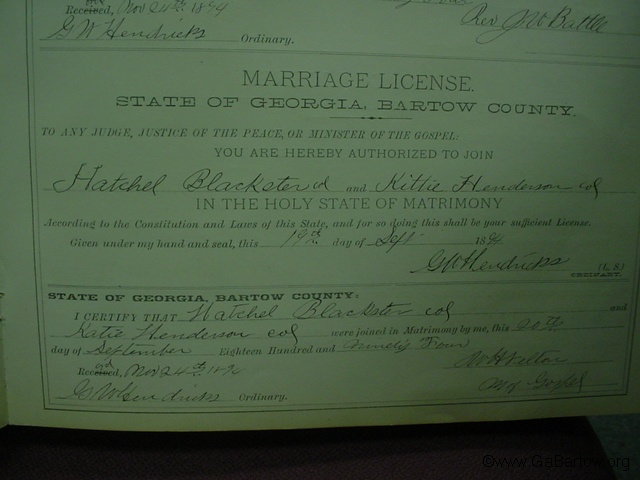 Received, Nov 24th 1894
Rev J W Battle
G W Hendricks Ordinary.
MARRIAGE LICENSE.
STATE OF GEORGIA, BARTOW COUNTY.
TO ANY JUDGE, JUSTICE OF THE PEACE, OR MINISTER OF THE GOSPEL:
YOU ARE HEREBY AUTHORIZED TO JOIN
Hatchel Blackster col and Kittie Henderson col
IN THE HOLY STATE OF MATRIMONY
According to the Constitution and Laws of this State, and for so doing this shall be your sufficient License.
Given under my hand and seal, this 19th day of Sept 1894
G W Hendricks (L. S.)
ORDINARY.
STATE OF GEORGIA, BARTOW COUNTY:
I CERTIFY THAT Hatchel Blackster col and
Katie Henderson col were joined in Matrimony by me, this 20th
day of September Eighteen Hundred and ninety Four
Received, Nov 24th 1894
G W Hendricks Ordinary.
©www.GaBartow.org